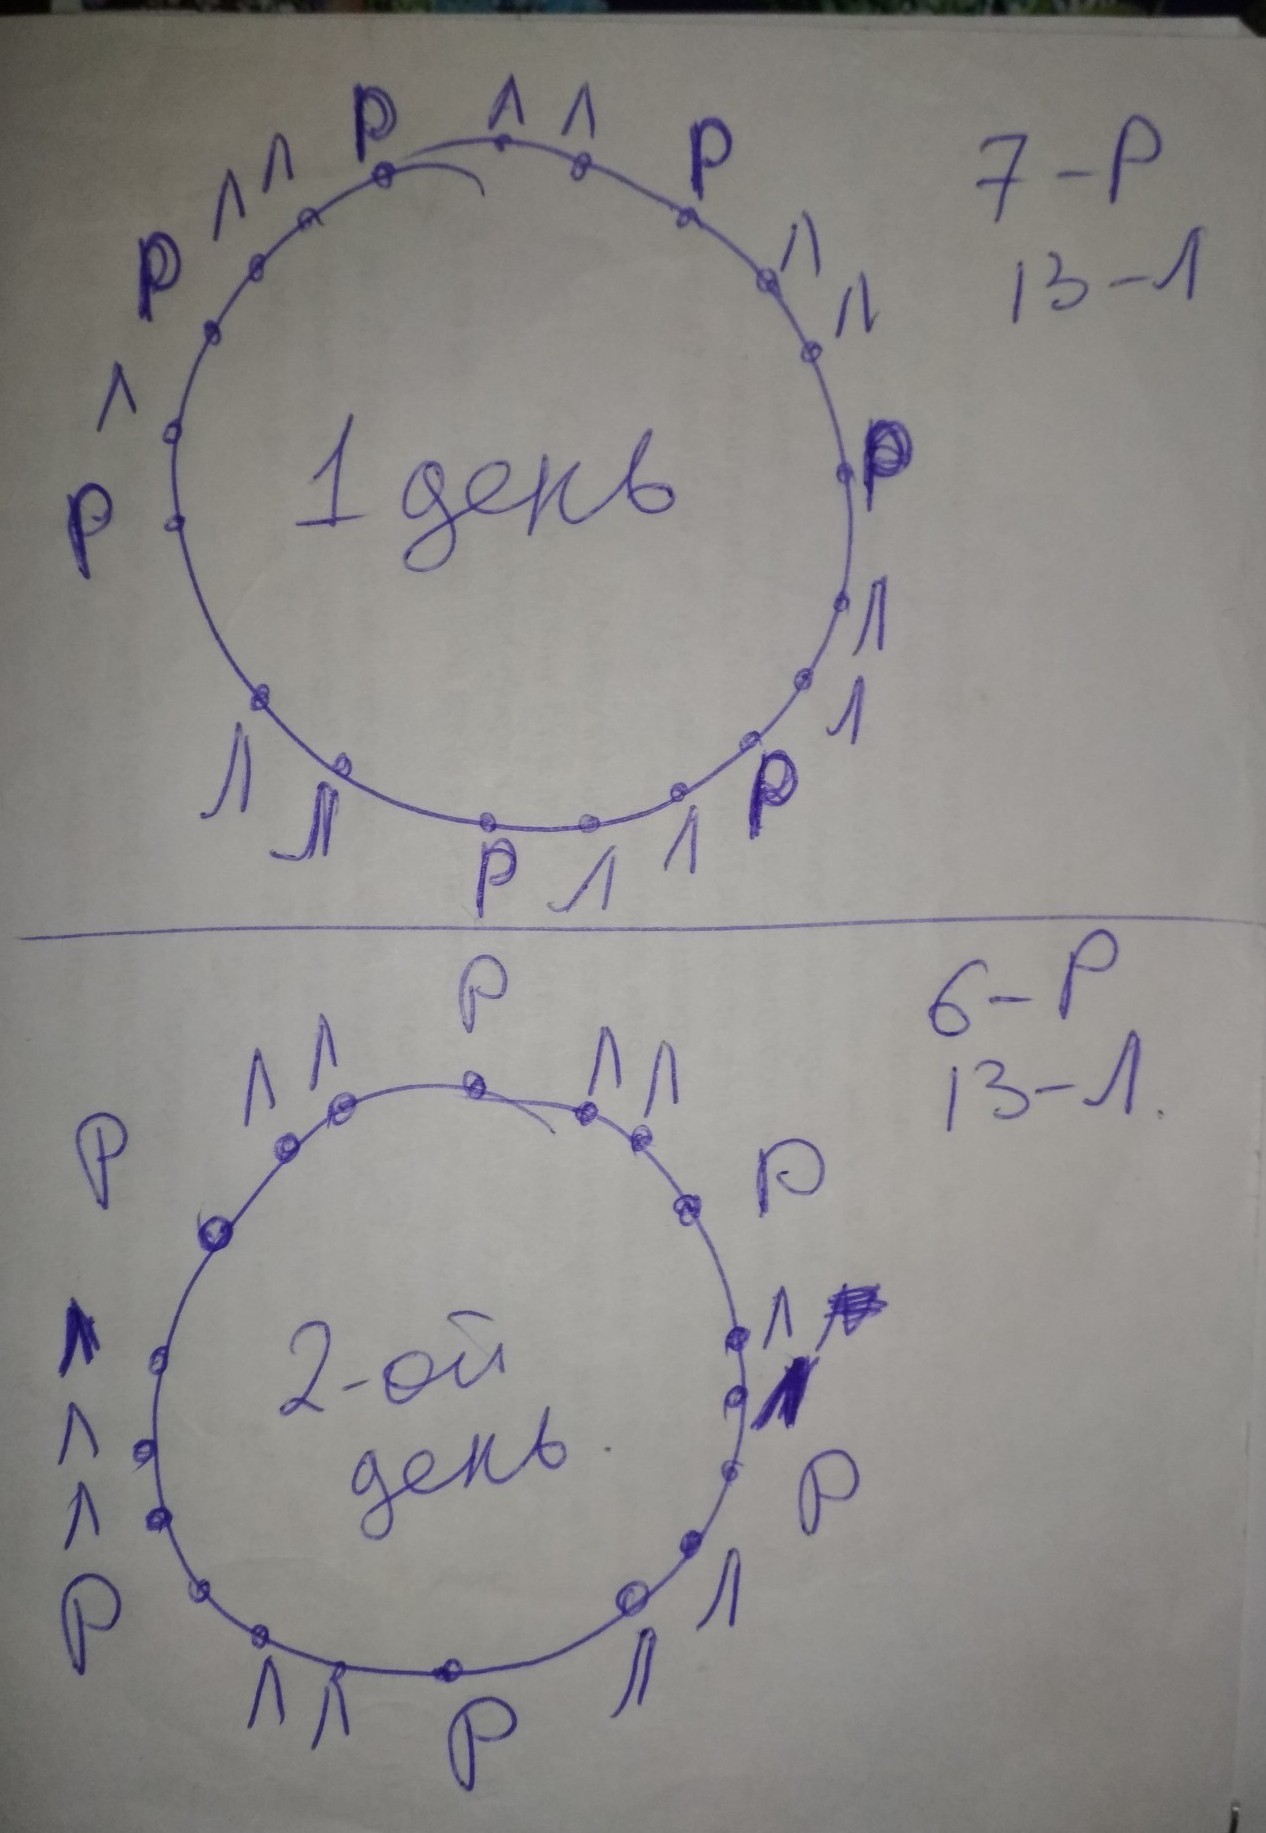 Р Л Л Р Л Л Р Л Л Р Л Л Р Л Л Р Л Р Л Л
7-Р
13-Л
1 день
Р Л Л Р Л Л Р Л Л Р Л Л Р Л Л Л Р Л Л
6-Р
13-Л.
2-ой
день.